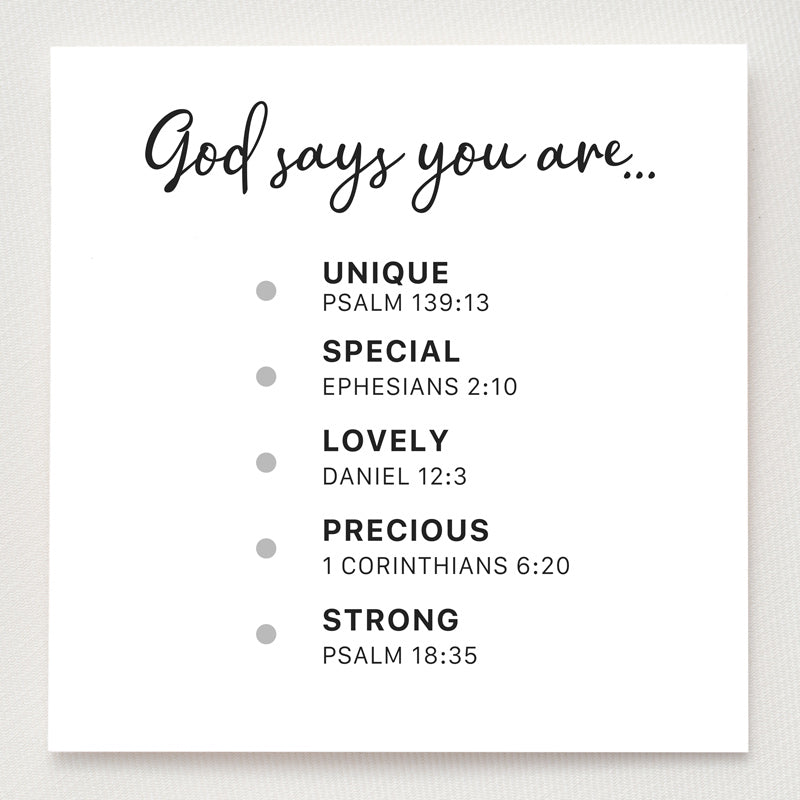 God says you are...
UNIQUE
PSALM 139:13
SPECIAL
EPHESIANS 2:10
LOVELY
DANIEL 12:3
PRECIOUS
1 CORINTHIANS 6:20
STRONG
PSALM 18:35